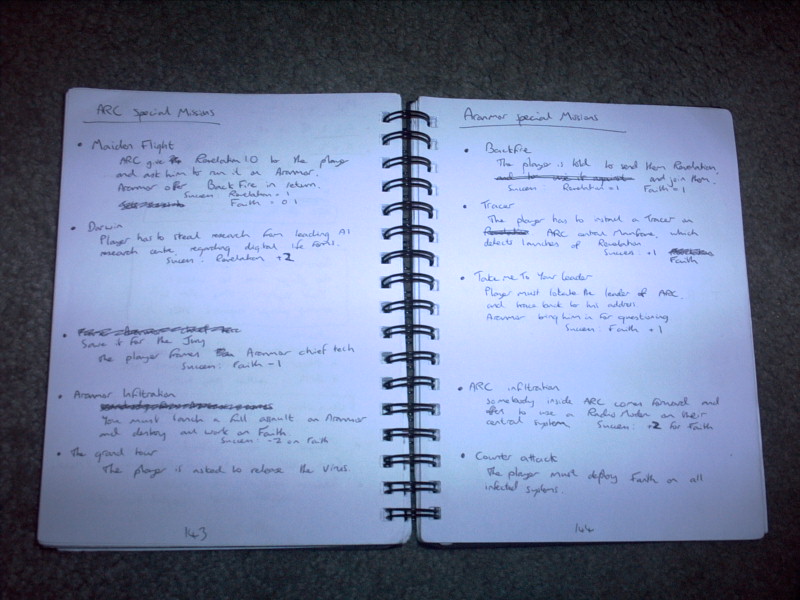 ARC Special Missions
• Maiden Flight
ARC give Revelation 1.0 to the player
and ask him to run it on Arunmor.
Arunmor offer BackFire in return.
Success: Revelation = 1
Faith = 0.1
• Darwin
Player has to steal research from leading AI
research centre, regarding digital life forms.
Success: Revelation +2
• Save it for the Jury
The player frames Arunmor chief tech
Success: Faith -1
• Arunmor Infiltration
You must launch a full assault on Arunmor
and destroy all work on Faith.
Success: -2 on Faith
• The grand tour
The player is asked to release the virus.
143
Arunmor special Missions
• Backfire
The player is told to send them Revelation,
and join them.
Success: Revelation = 1 Faith = 1
• Tracer
The player has to install a Tracer on
ARC central Mainframe, which
detects launches of Revelation
Success: +1
Faith
• Take me To Your leader
Player must locate the leader of ARC,
and trace back to his address
Arunmor bring him in for questioning
Success: Faith +1
• ARC infiltration
somebody inside ARC comes forward and
offers to use a Radio Modem on their
central system. Success: +2 for Faith
• Counter attack
The player must deploy Faith on all
infected systems.
144